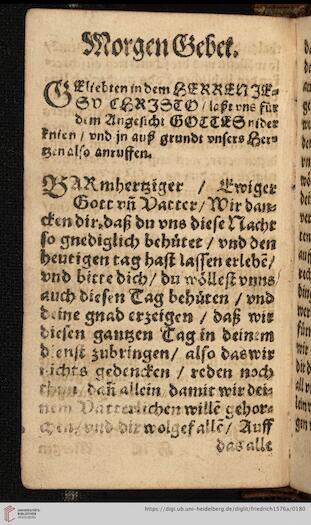 Morgen Gebet.
GEliebten in dem HERREN JE-
SV CHRISTO / laßt vns für
dem Angesicht GOTTES nider
knien / vnd jn auß grundt vnsers Her-
tzen also anruffen.
BARmhertziger / Ewiger
Gott vñ Vatter / Wir dan-
cken dir, daß du vns diese Nacht
so gnediglich behütet / vnd den
heutigen tag hast lassen erlebẽ /
vnd bitte dich / du wöllest vnns
auch diesen Tag behüten / vnd
deine gnad erzeigen / daß wir
diesen gantzen Tag in deinem
dienst zubringen / also das wir
nichts gedencken / reden noch
thun / dañ allein damit wir dei-
nem Vatterlichen willẽ gehor-
chen / vnd dir wolgefallẽ / Auff
das alle
UNIVERSITÄTS-
BIBLIOTHEK
HEIDELBERG
https://digi.ub.uni-heidelberg.de/diglit/friedrich1576a/0180